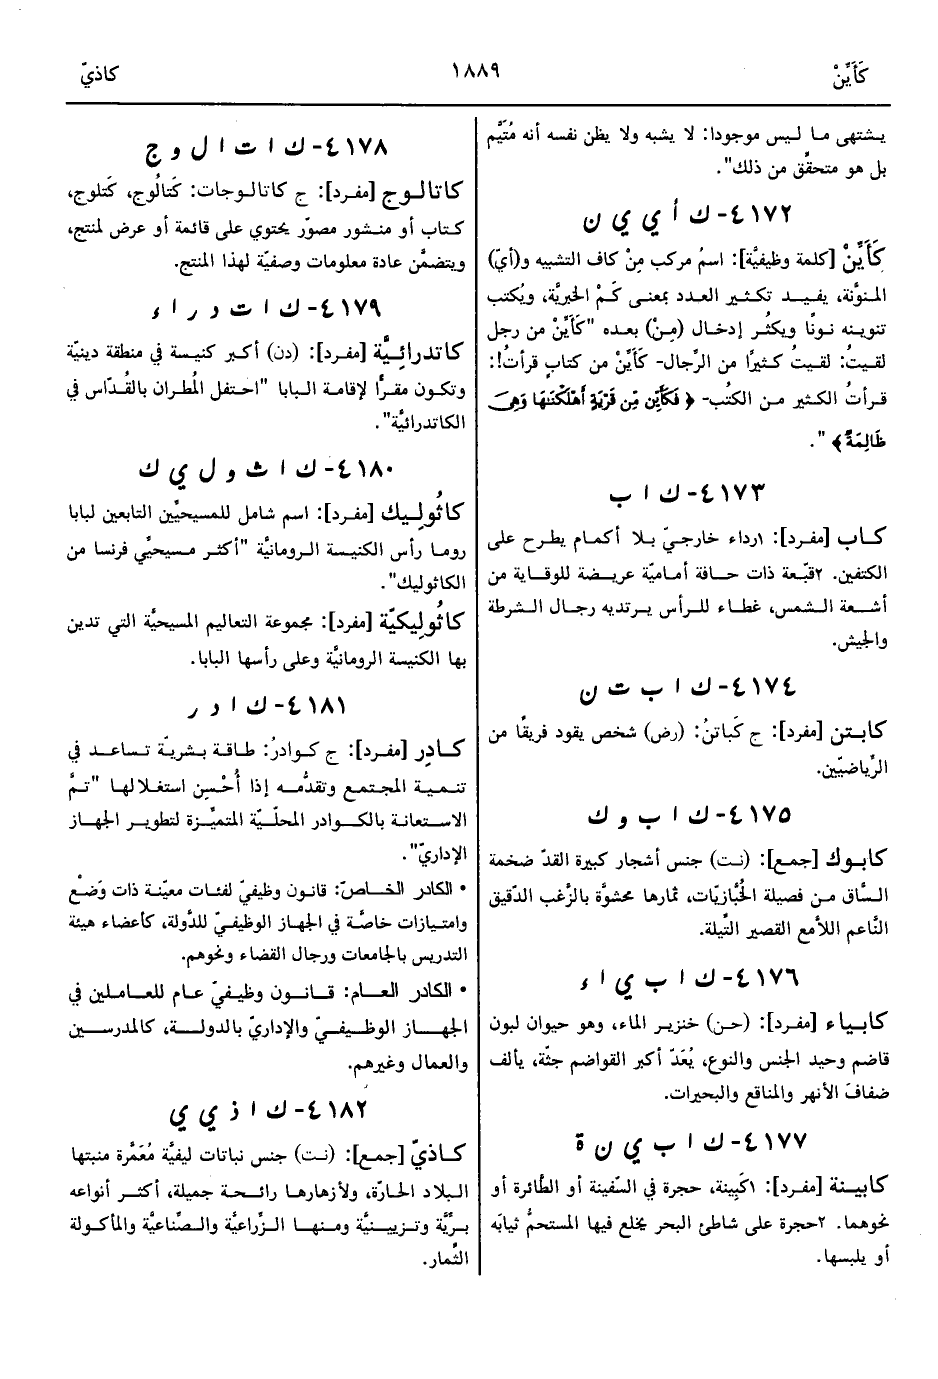 كَأَيِّنْ
١٨٨٩
كاذيّ
يشتهى ما ليس موجودا: لا يشبه ولا يظن نفسه أنه مُتَيَّم
بل هو متحقّق من ذلك".
٤١٧٢- ك أ ي ي ن
كَأَيِّنْ [كلمة وظيفيَّة]: اسمُ مركب مِنْ كاف التشبيه و(أيّ)
المنوَّنة، يفيد تكثير العدد بمعنى كَمْ الخبريَّة، ويُكتب
تنوينه نونًا ويكثُر إدخال (مِنْ) بعده "كَأَيِّنْ من رجل
لقيتُ: لقيتُ كثيرًا من الرِّجال- كَأَيِّنْ من كتابٍ قرأتُ!:
قرأتُ الكثير من الكتُب- ﴿ فَكَأَيِّن مِّن قَرْيَةٍ أَهْلَكْنَاهَا وَهِيَ
ظَالِمَةٌ ﴾ ".
٤١٧٣- ك ا ب
كاب [مفرد]: ١رداء خارجيّ بلا أكمام يطرح على
الكتفين. ٢قبّعة ذات حافة أماميّة عريضة للوقاية من
أشعة الشمس، غطاء للرأس يرتديه رجال الشرطة
والجيش.
٤١٧٤- ك ا ب ت ن
كابتن [مفرد]: ج كَباتنُ: (رض) شخص يقود فريقًا من
الرِّياضيّين.
٤١٧٥- ك ا ب و ك
كابوك [جمع]: (نت) جنس أشجار كبيرة القدّ ضخمة
السَّاق من فصيلة الخُبَّازيّات، ثمارها محشوَّة بالزَّغب الدّقيق
النَّاعم اللاَّمع القصير التِّيلة.
٤١٧٦- ك ا ب ي ا ء
كابياء [مفرد]: (حن) خنزير الماء، وهو حيوان لبون
قاضم وحيد الجنس والنوع، يُعَدّ أكبر القواضم جثّة، يألف
ضفافَ الأنهر والمناقع والبحيرات.
٤١٧٧- ك ا ب ي ن ة
كابينة [مفرد]: ١كَبِينة، حجرة في السّفينة أو الطَّائرة أو
نحوهما. ٢حجرة على شاطئ البحر يخلع فيها المستحمُّ ثيابَه
أو يلبسها.
٤١٧٨- ك ا ت ا ل و ج
كاتالوج [مفرد]: ج كاتالوجات: كَتَالُوج، كَتَلوج،
كتاب أو منشور مصوّر يحتوي على قائمة أو عرض لمنتج،
ويتضمَّن عادة معلومات وصفيَّة لهذا المنتج.
٤١٧٩- ك ا ت د ر ا ء
كاتدرائيَّة [مفرد]: (دن) أكبر كنيسة في منطقة دينيَّة
وتكون مقرًّا لإقامة البابا "احتفل المُطران بالقُدّاس في
الكاتدرائيَّة".
٤١٨٠- ك ا ث و ل ي ك
كاثُوليك [مفرد]: اسم شامل للمسيحيِّين التابعين لبابا
روما رأس الكنيسة الرومانيَّة "أكثر مسيحيِّي فرنسا من
الكاثوليك".
كاثُوليكيّة [مفرد]: مجموعة التعاليم المسيحيَّة التي تدين
بها الكنيسة الرومانيَّة وعلى رأسها البابا.
٤١٨١- ك ا د ر
كادِر [مفرد]: ج كوادرُ: طاقة بشريَّة تساعد في
تنمية المجتمع وتقدُّمه إذا أُحْسِن استغلالها "تمَّ
الاستعانة بالكوادر المحلّيَّة المتميِّزة لتطوير الجهاز
الإداريّ".
• الكادر الخاصّ: قانون وظيفيّ لفئات معيّنة ذات وَضْع
وامتيازات خاصَّة في الجهاز الوظيفيّ للدَّولة، كأعضاء هيئة
التدريس بالجامعات ورجال القضاء ونحوهم.
• الكادر العامّ: قانون وظيفيّ عام للعاملين في
الجهاز الوظيفيّ والإداريّ بالدولة، كالمدرسين
والعمال وغيرهم.
٤١٨٢- ك ا ذ ي ي
كاذيّ [جمع]: (نت) جنس نباتات ليفيَّة مُعَمَّرة منبتها
البلاد الحارّة، ولأزهارها رائحة جميلة، أكثر أنواعه
برِّيَّة وتزيينيَّة ومنها الزِّراعيَّة والصِّناعيَّة والمأكولة
الثِّمار.